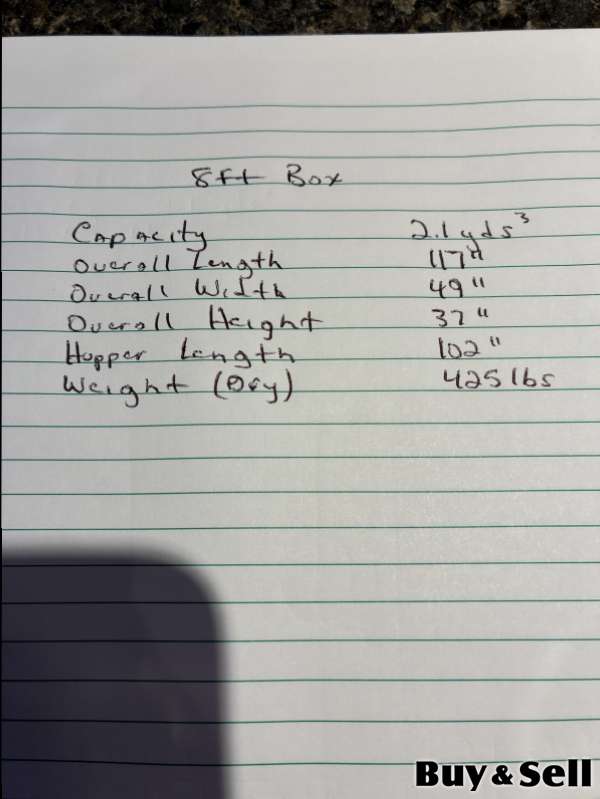 8ft Box
Capacity 2.1 yds³
Overall Length 117"
Overall Width 49"
Overall Height 37"
Hopper Length 102"
Weight (Dry) 425 lbs
Buy & Sell